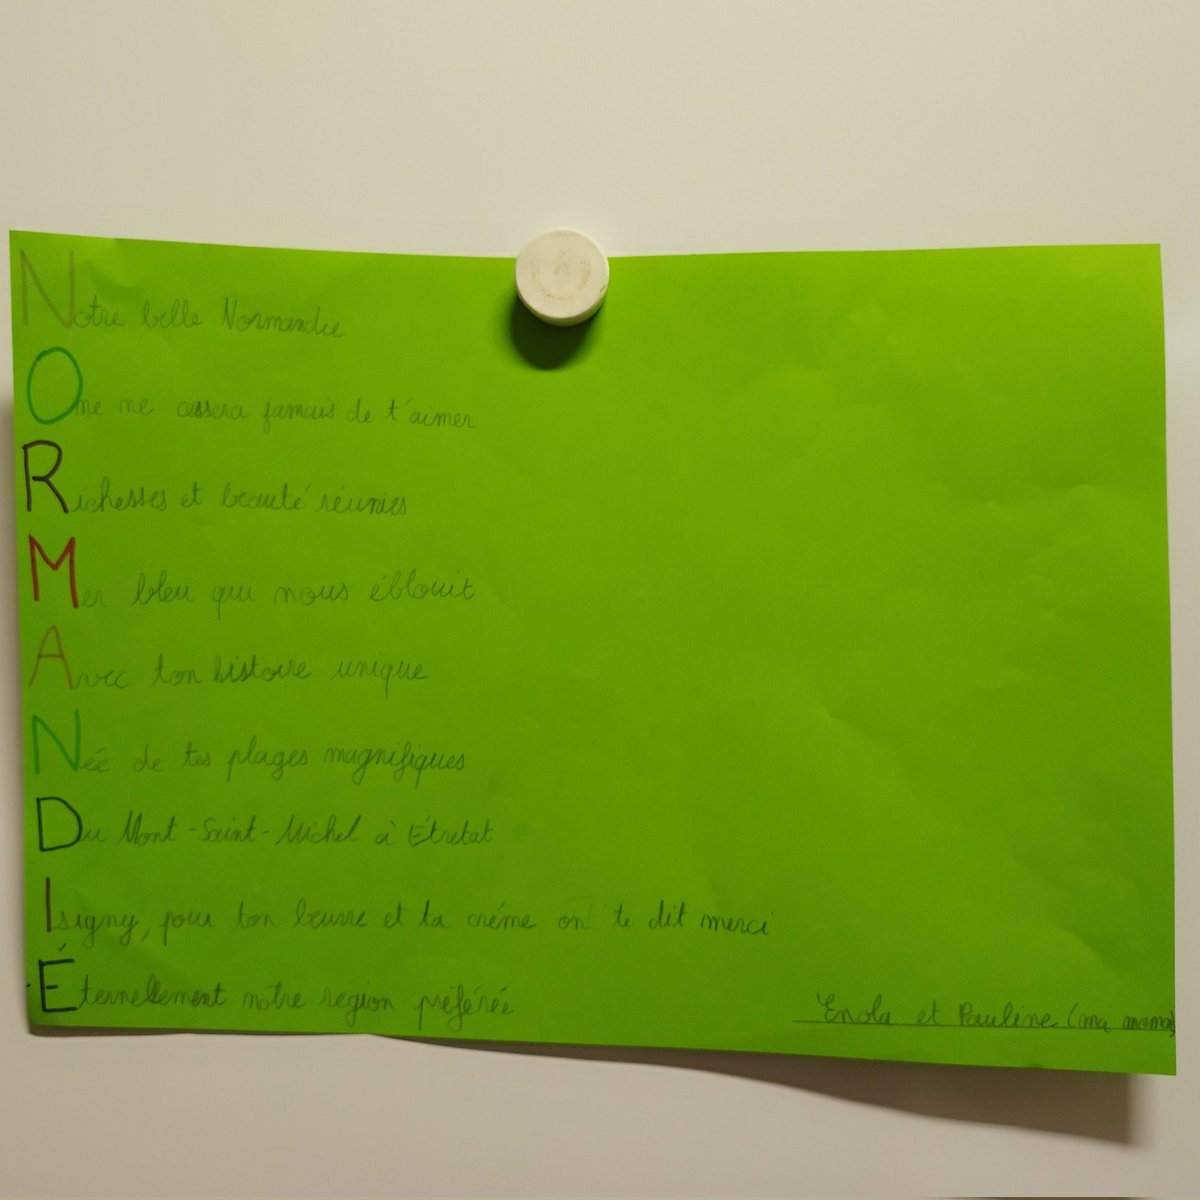 Notre belle Normandie
One ne cessera jamais de t'aimer
Richesses et beauté réunies
Mer bleu qui nous éblouit
Avec ton histoire unique
Néé de tes plages magnifiques
Du Mont-Saint-Michel à Étretat
Isigny, pour ton beurre et ta créme on te dit merci
Éternellement notre region préférée
Enola et Pauline (ma mama)